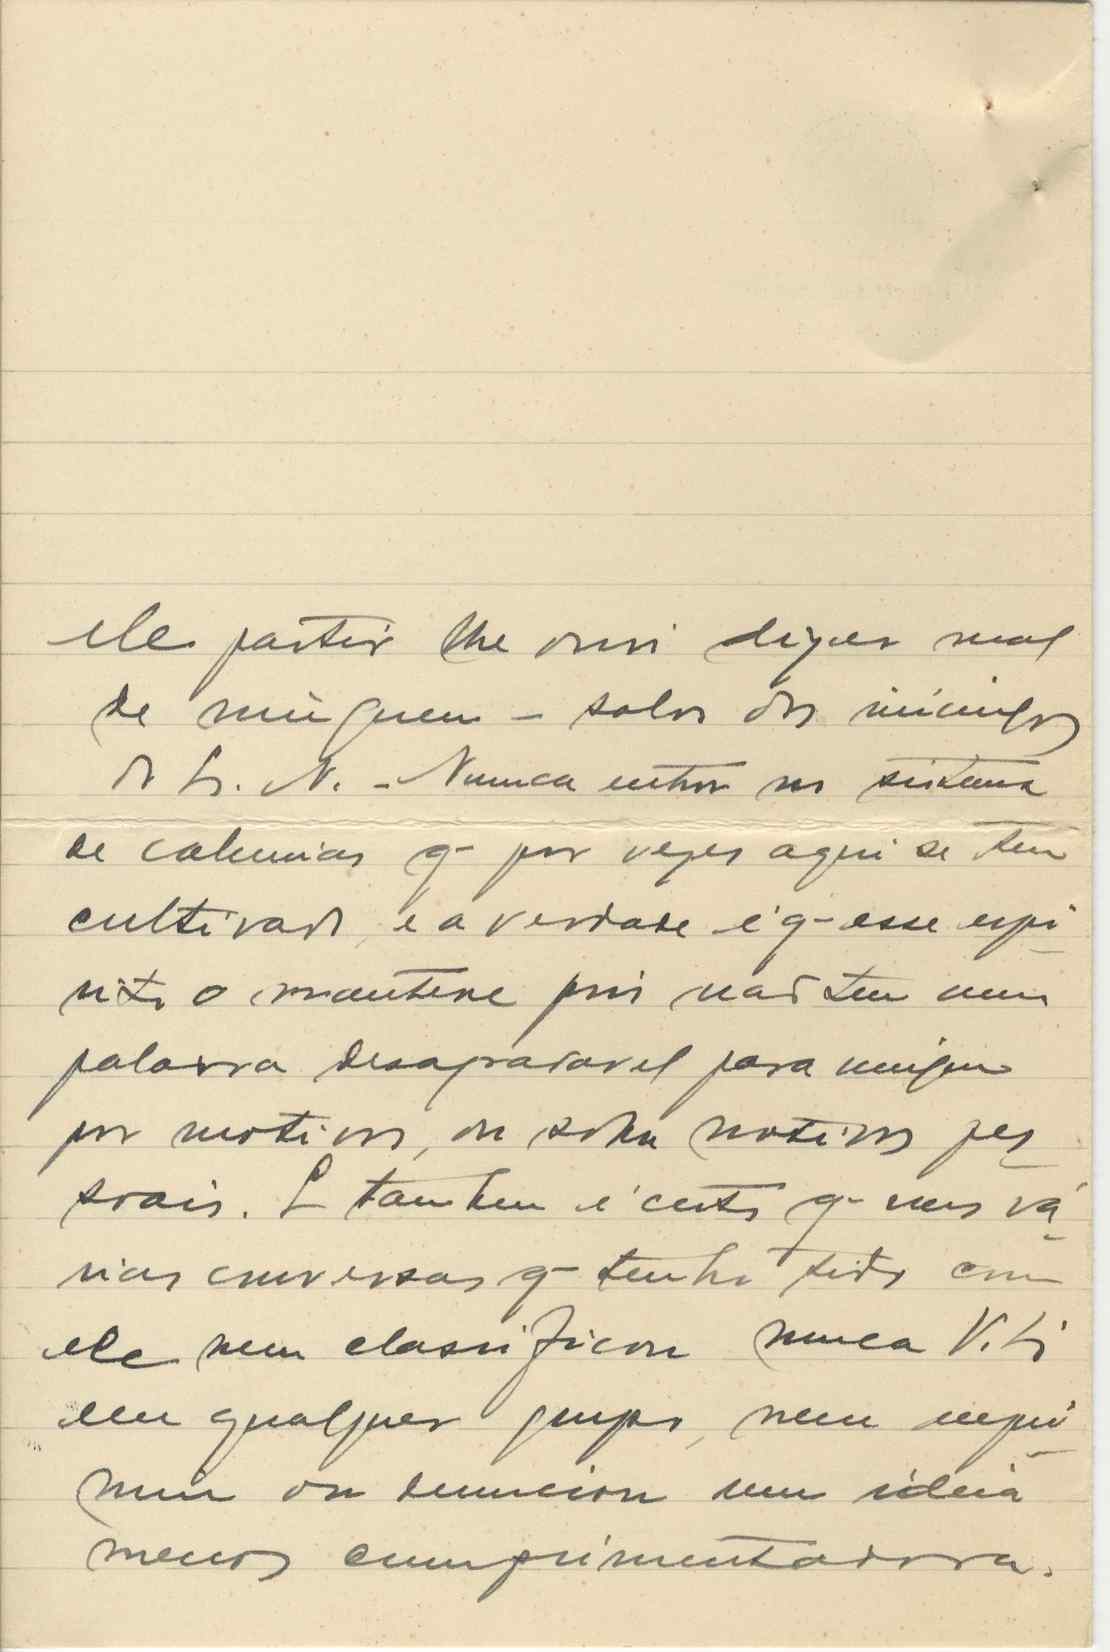 ele partir lhe ouvi dizer mal
de ninguem – salvo dos inimigos
do N. – Nunca entrou no sistema
de calumias q– por vezes aqui se tem
cultivado, e a verdade é q– esse espi
rito o mantene pois não tem uma
palavra desagradavel para ninguem
por motivos, ou sobre motivos pes
soais. E tambem é certo q– nas vá
rias conversas q– tenho tido com
ele nem classificou nunca V.
em qualquer grupo, nem expri
miu ou denunciou uma ideia
menos cumprimentadora.